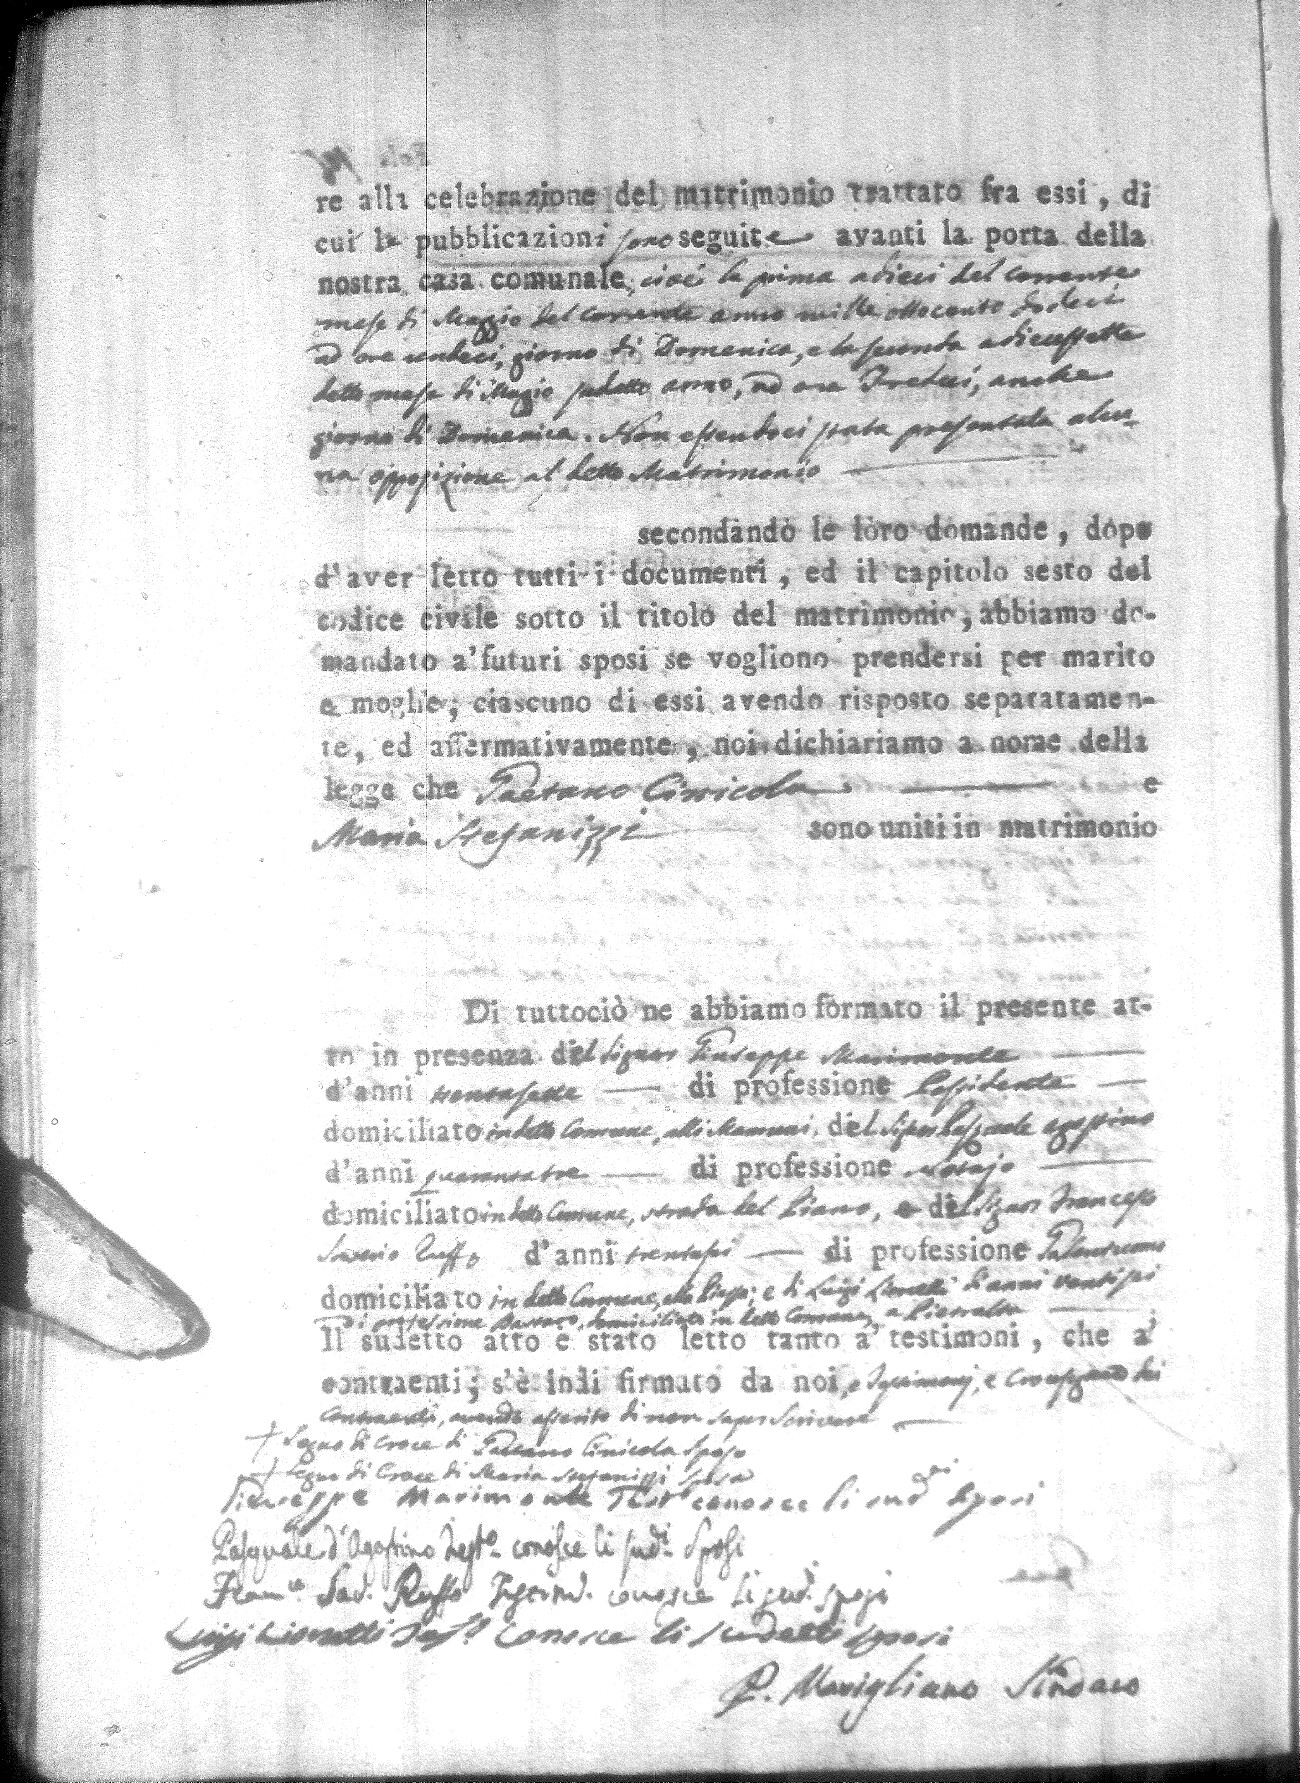 re alla celebrazione del matrimonio trattato fra essi, di
cui le pubblicazioni sono seguite avanti la porta della
nostra casa comunale, cioè la prima a dieci del corrente
mese di Maggio del corrente anno mille ottocento dodeci
ad ore undeci, giorno di Domenica, e la seconda a diecessette
detto mese di Maggio sudetto anno, ad ore Tredeci, anche
giorno di Domenica. Non essendoci stata presentata alcu-
na opposizione al detto Matrimonio
secondando le loro domande, dopo
d'aver letto tutti i documenti, ed il capitolo sesto del
codice civile sotto il titolo del matrimonio, abbiamo do-
mandato a' futuri sposi se vogliono prendersi per marito
e moglie; ciascuno di essi avendo risposto separatamen-
te, ed affermativamente, noi dichiariamo a nome della
legge che Gaetano Cinicola e
Maria Stefanizzi sono uniti in matrimonio
Di tuttociò ne abbiamo formato il presente at-
to in presenza del Signor Giuseppe Marimonte
d'anni trentasette di professione Possidente
domiciliato in detto Comune, alli del Signor Pasquale Agostino
d'anni quarantatre di professione Notajo
domiciliato in detto Comune, strada del Piano, e del Signor Francesco
Saverio Ruffo d'anni trentasei di professione Galantuomo
domiciliato in detto Comune, e di Luigi Lionetti di anni ventisei
di professione domiciliato in detto Comune, a Pietralta
Il sudetto atto è stato letto tanto a' testimoni, che a'
contraenti; s'è indi firmato da noi, e Testimonj, e Crocesegnato dai
Contraenti, avendo asserito di non saper scrivere
+ Segno di Croce di Gaetano Cinicola sposo
+ Segno di Croce di Maria Stefanizzi sposa
Giuseppe Marimonte Test.e conosce li sud.di sposi
Pasquale d'Agostino Test.o conosce li sud.i Sposi
Fran.co Sav. Ruffo Testim. conosce li sud.i sposi
Luigi Lionetti Tes.o Conosce li sudetti sposi
P. Mavigliano Sindaco